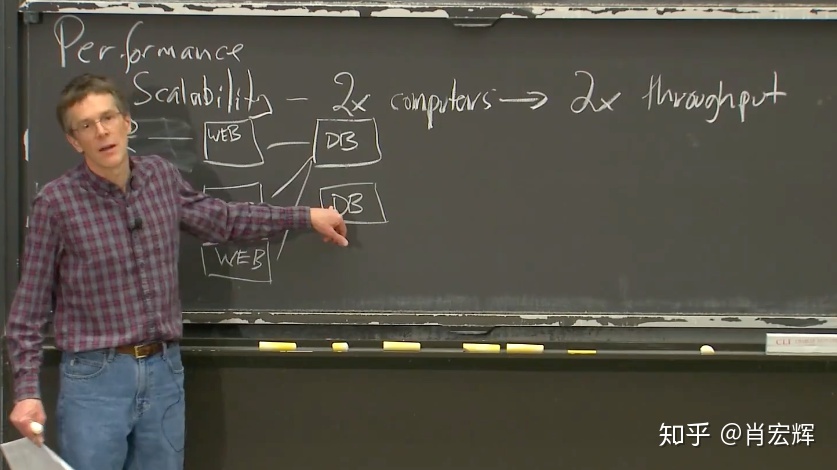 Performance
Scalability - 2x computers → 2x throughput
WEB DB
DB
WEB
知乎 @肖宏辉